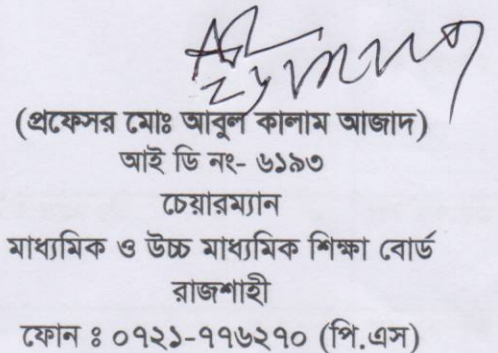 (প্রফেসর মোঃ আবুল কালাম আজাদ)
আই ডি নং- ৬১৯৩
চেয়ারম্যান
মাধ্যমিক ও উচ্চ মাধ্যমিক শিক্ষা বোর্ড
রাজশাহী
ফোন ঃ ০৭২১-৭৭৬২৭০ (পি.এস)